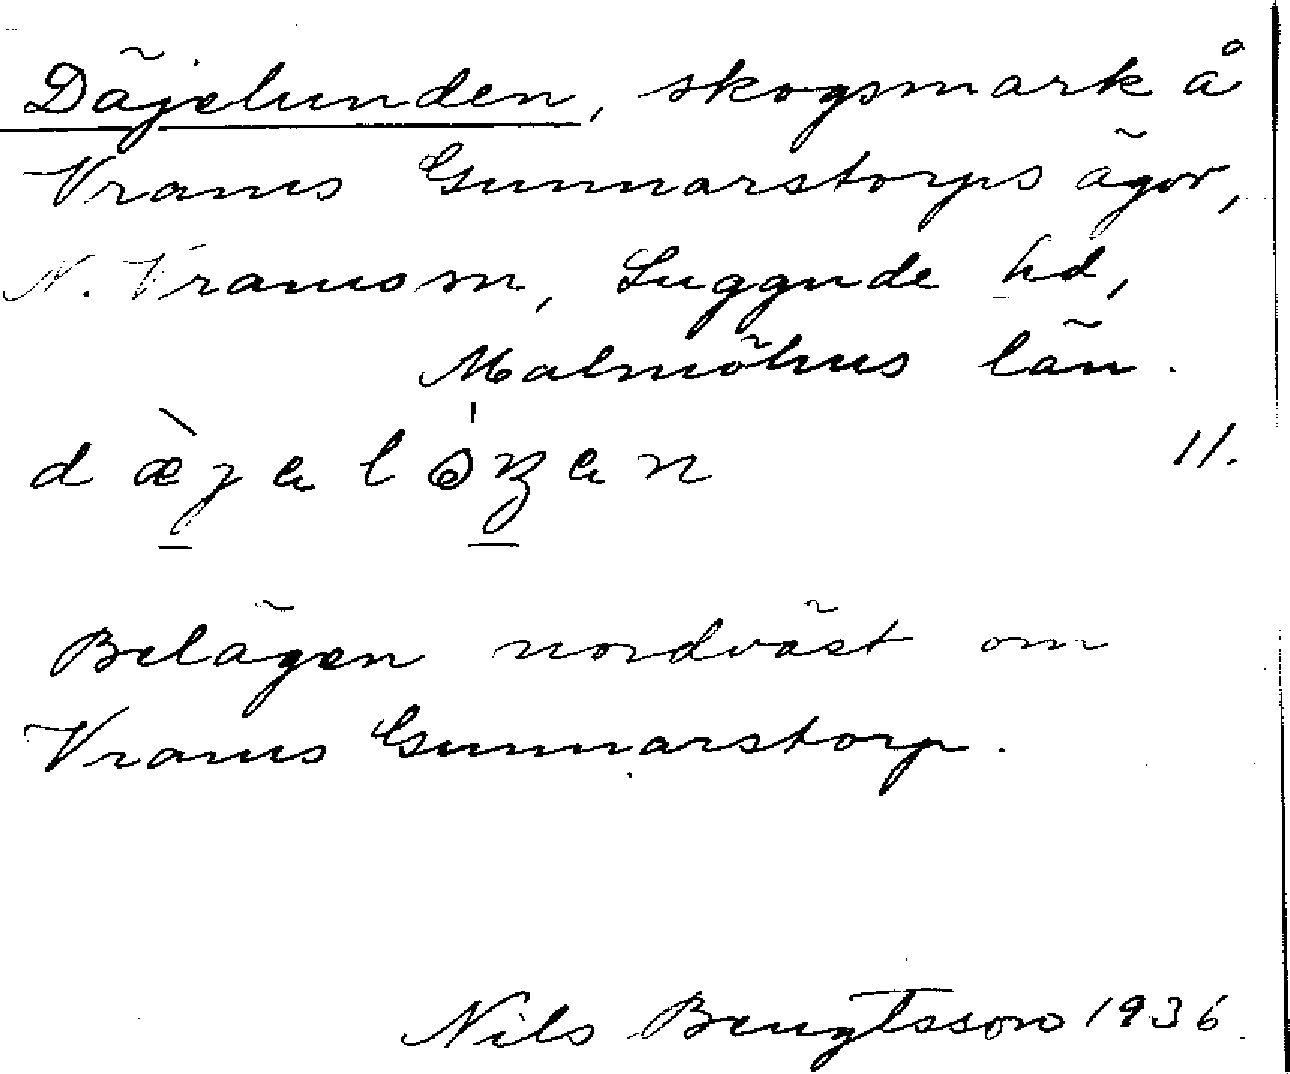 Däjelunden, skogsmark å
Vrams Gunnarstorps ägor,
N. Vrams sn, Luggude hd,
Malmöhus län.
11.
Belägen nordväst om
Vrams Gunnarstorp.
Nils Bengtsson 1936.